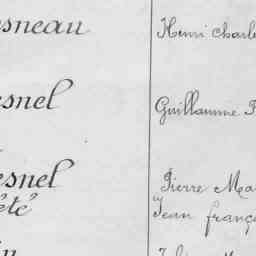 esneau Henri Charle
esnel Guillaume
esnel Pierre Ma
été Jean franç